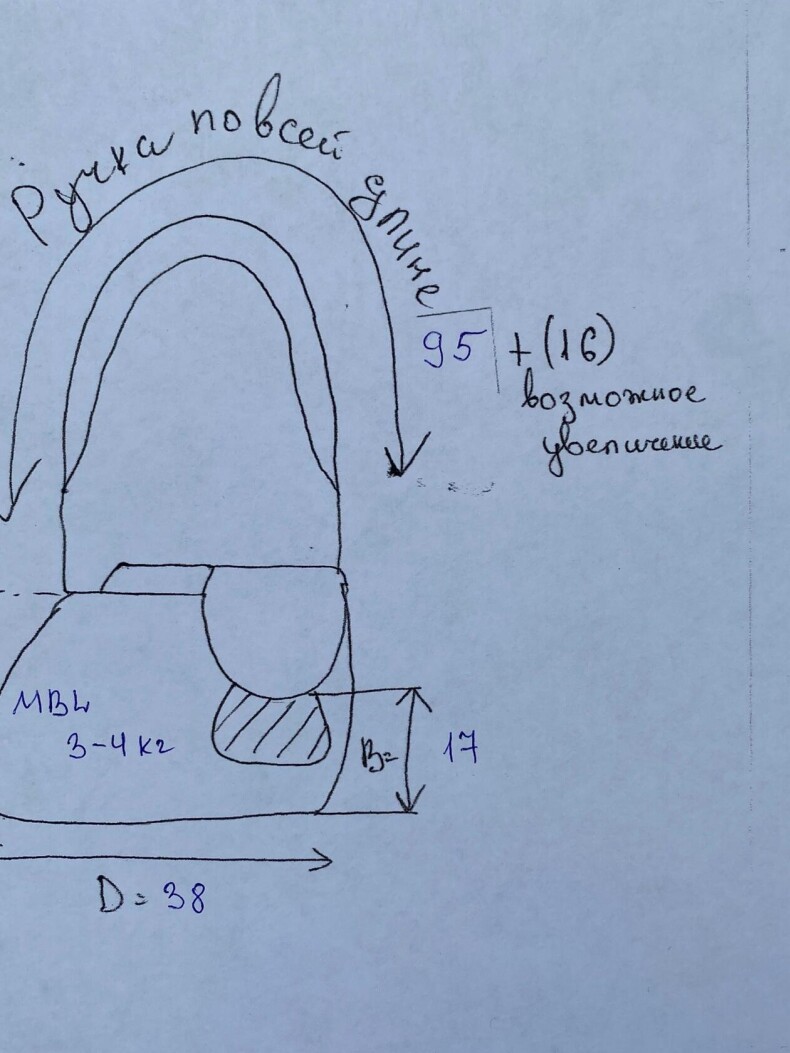 Ручка по всей длине
95 + (16)
возможное
увеличение
3-4 кг
B=
17
D = 38